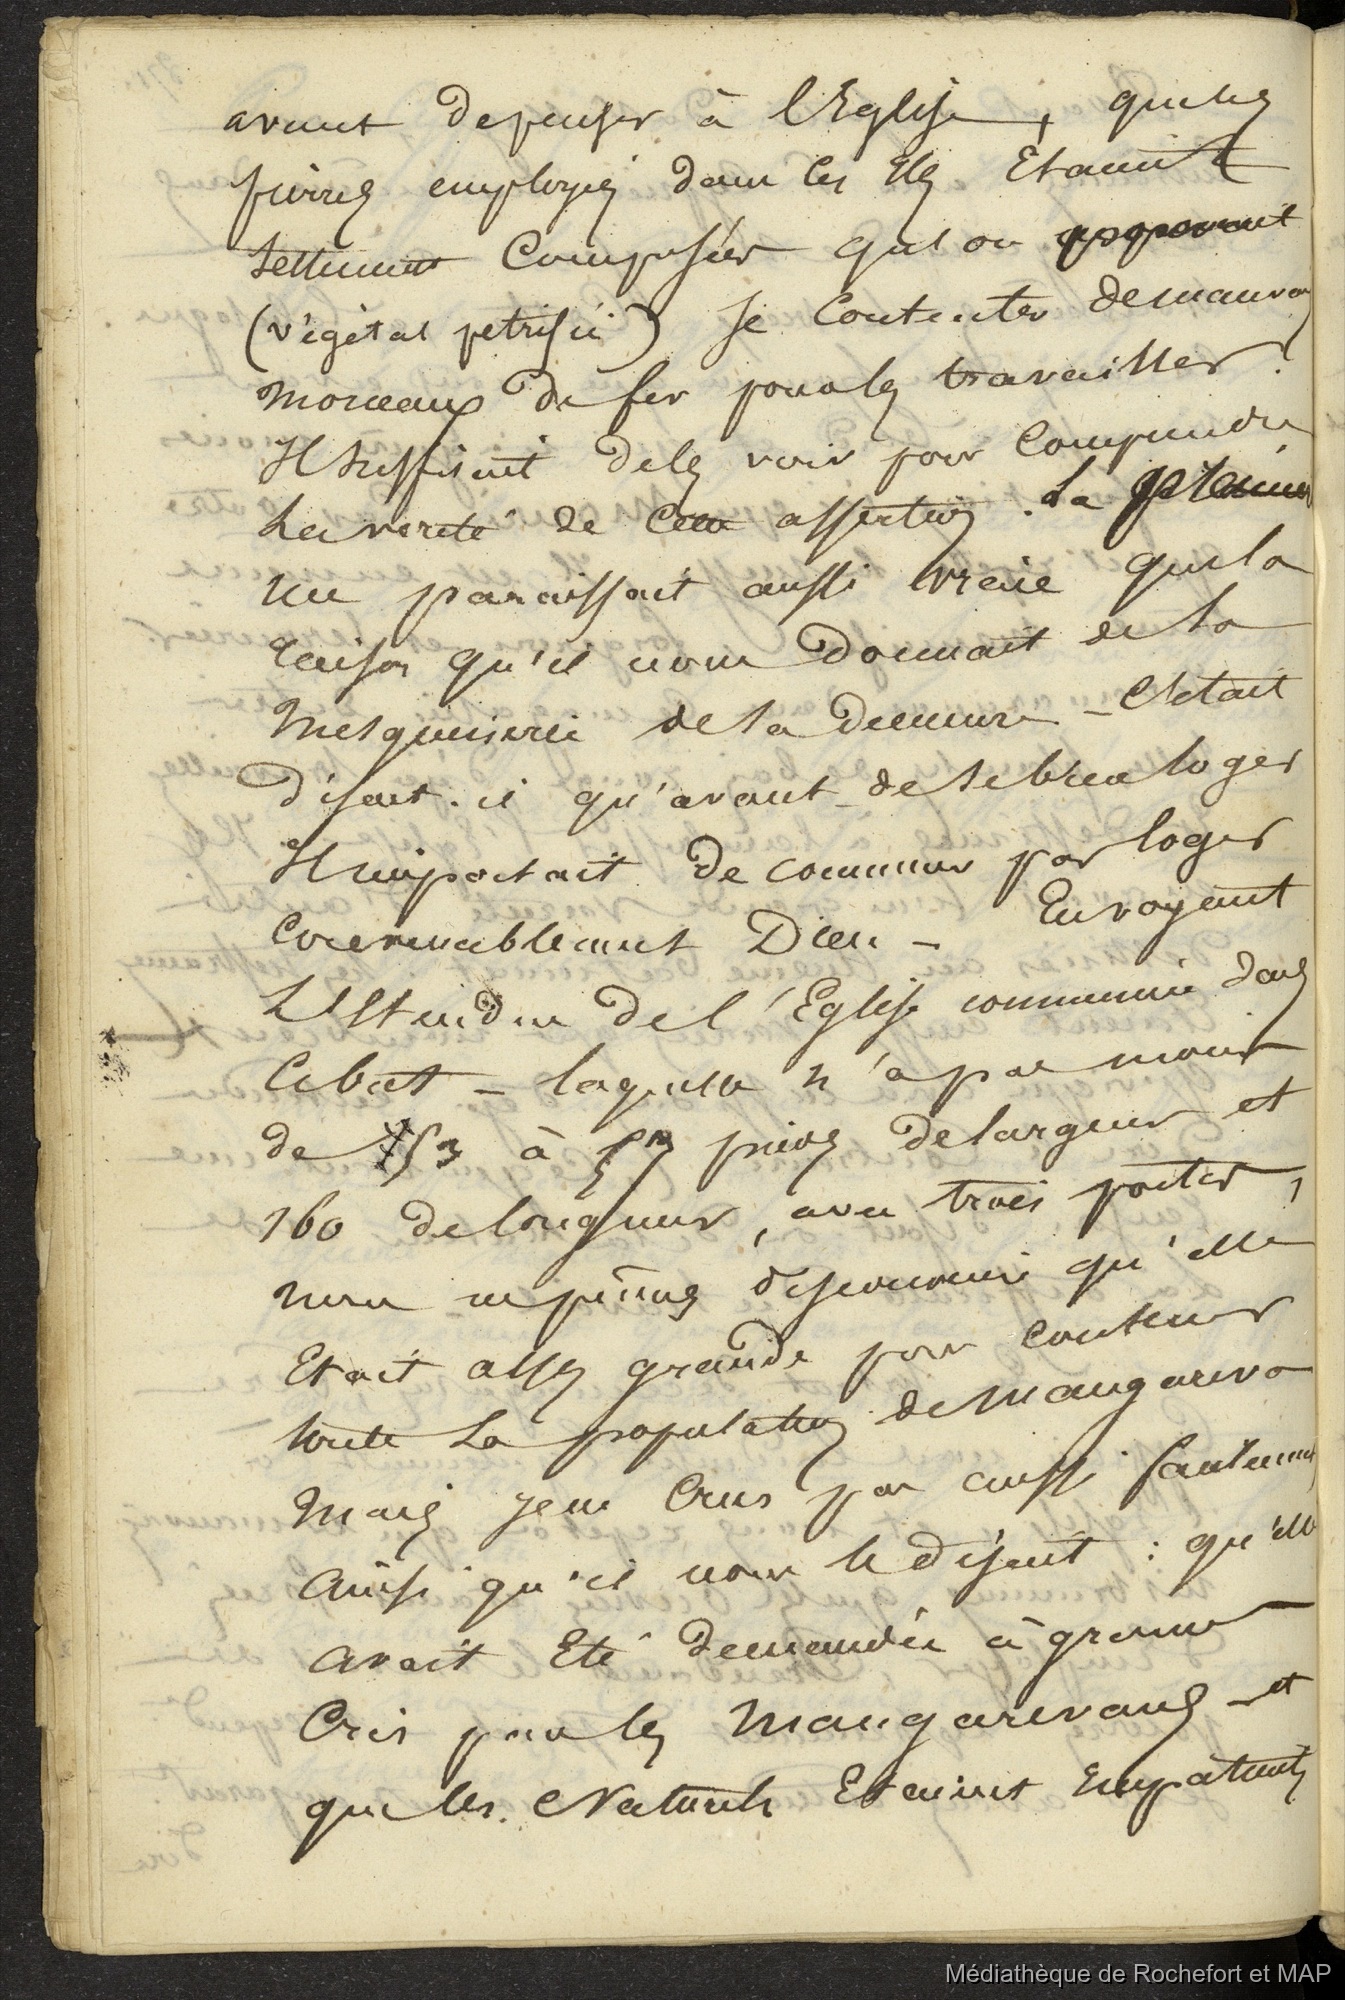 avant de penser à l'Eglise, que les
pierres employées dans les Iles Etaient
tellement Composées qu'on pouvait
(végétal petrifié) se Contenter de mauvais
morceaux de fer pour les travailler.
Il suffisait de les voir pour Comprendre
La vérité de Cette assertion. La
me paraissait aussi vraie que la
raison qu'il nous Donnait de la
Mesquinerie de sa Demeure - C'était
Disait-il qu'avant de se bien loger
Il importait de commencer par loger
Convenablement Dieu - En voyant
L'Etendue de l'Eglise commencée dans
Ce but - laquelle n'a pas moins
de 53 à 57 pieds de largeur et
160 de longueur, avec trois portes,
nous ne pûmes disconvenir qu'elle
Etait assez grande pour Contenir
toute La population de Mangareva
Mais je ne Crus pas aussi facilement
Ainsi qu'il nous le disait : qu'elle
avait Eté demandée à grands
Cris par les Mangareviens - et
que les Naturels Etaient Impatients
Médiathèque de Rochefort et MAP